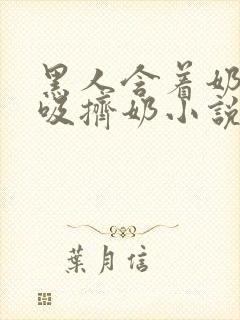 黑人含着奶
吸擠奶小說
葉月信